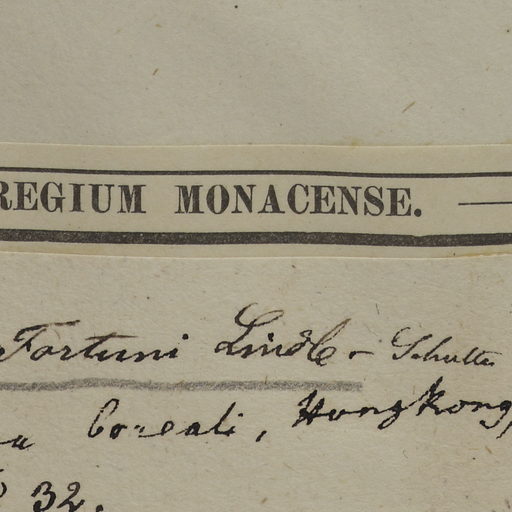 REGIUM MONACENSE.
Fortuni Lindl.
Boreali, Hongkong,
32.